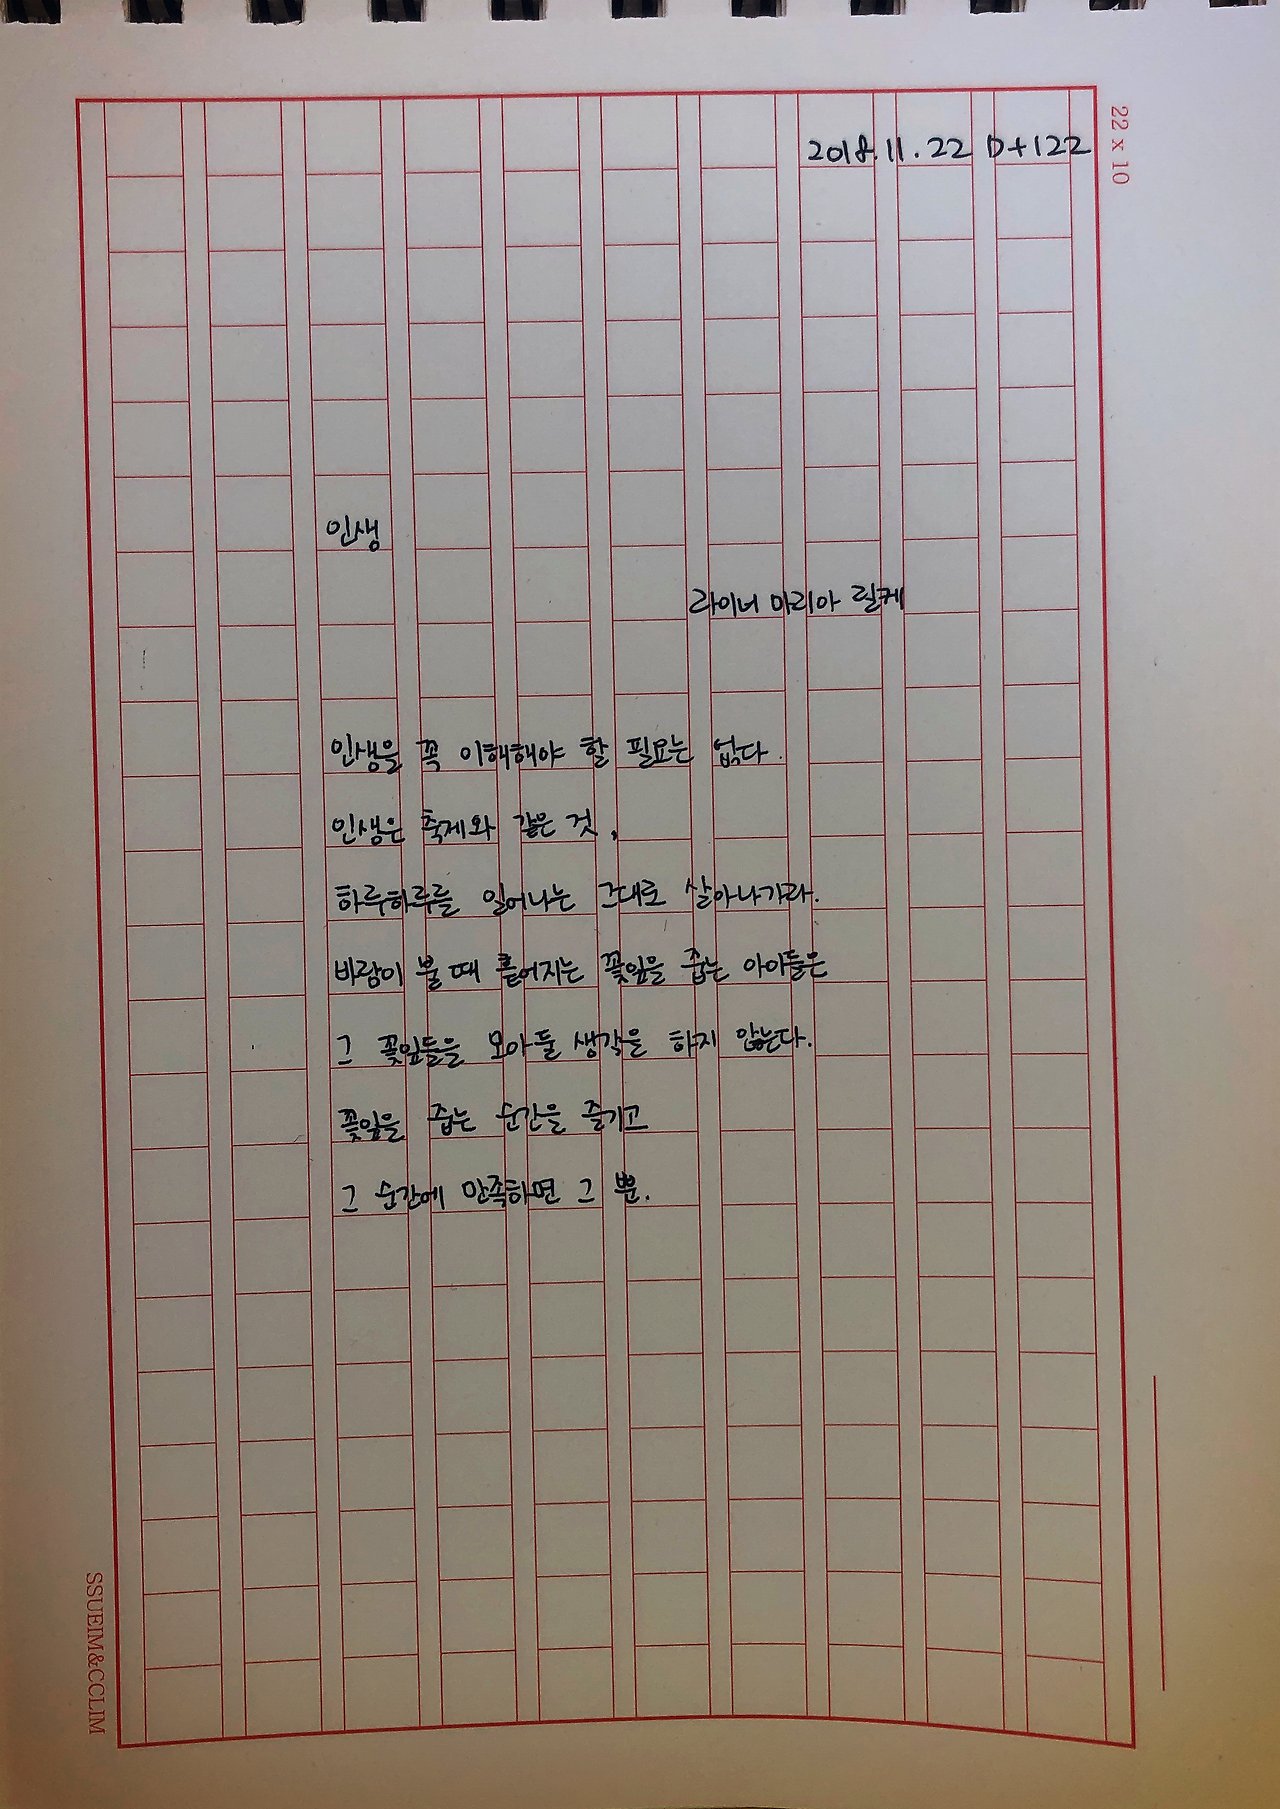 2018.11.22 D+122
22 x 10
인생
라이너 마리아 릴케
인생을 꼭 이해해야 할 필요는 없다.
인생은 축제와 같은 것,
하루하루를 일어나는 그대로 살아나가라.
바람이 불 때 흩어지는 꽃잎을 줍는 아이들은
그 꽃잎들을 모아둘 생각을 하지 않는다.
꽃잎을 줍는 순간을 즐기고
그 순간에 만족하면 그 뿐.
SSUEIM&CCLIM